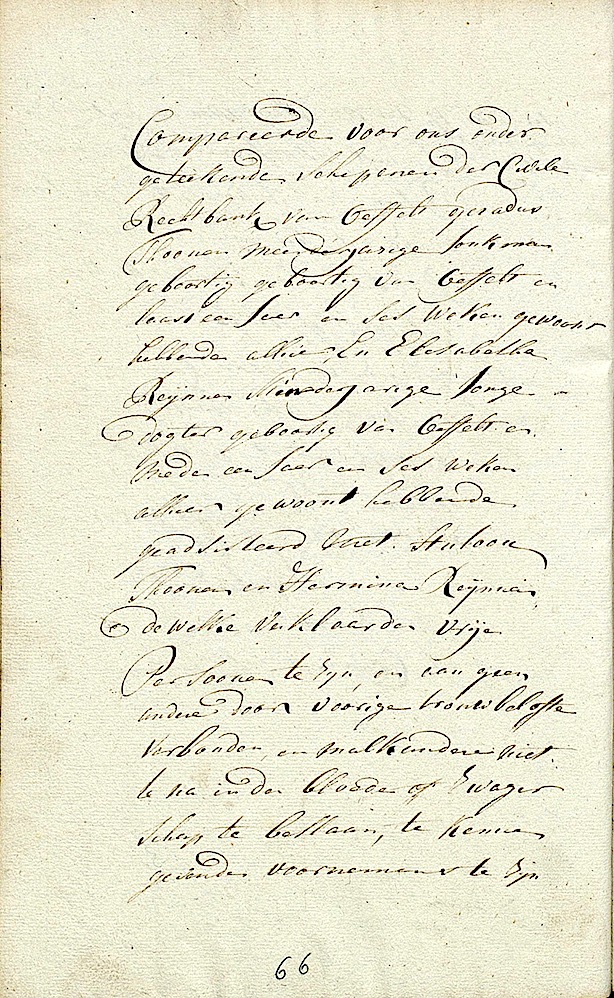 Compareerde voor ons onder
geteekende Schepenen der Civile
Rechtbank van Oeffelt geradus
Thoonen meerderjarige Jonkman
geboortig geboortig van Oeffelt en
laast een Jaer en ses weken gewoont
hebbende alhier, En Elisabetha
Reijnnen Minderjarige Jonge
dogter geboortig van Oeffelt en
mede een Jaer en ses weken
alhier gewoont hebbende
geadsisteerd met
Thoonen en Hermina Reijnnen
dewelke verklaarden vrije
Persoonen te zyn, en aan geen
andere door voorige trouwbelofte
verbonden, en malkandere niet
te na in den bloede of Zwager
schap te bestaan, te kenne
gevende voornemens te zyn
66